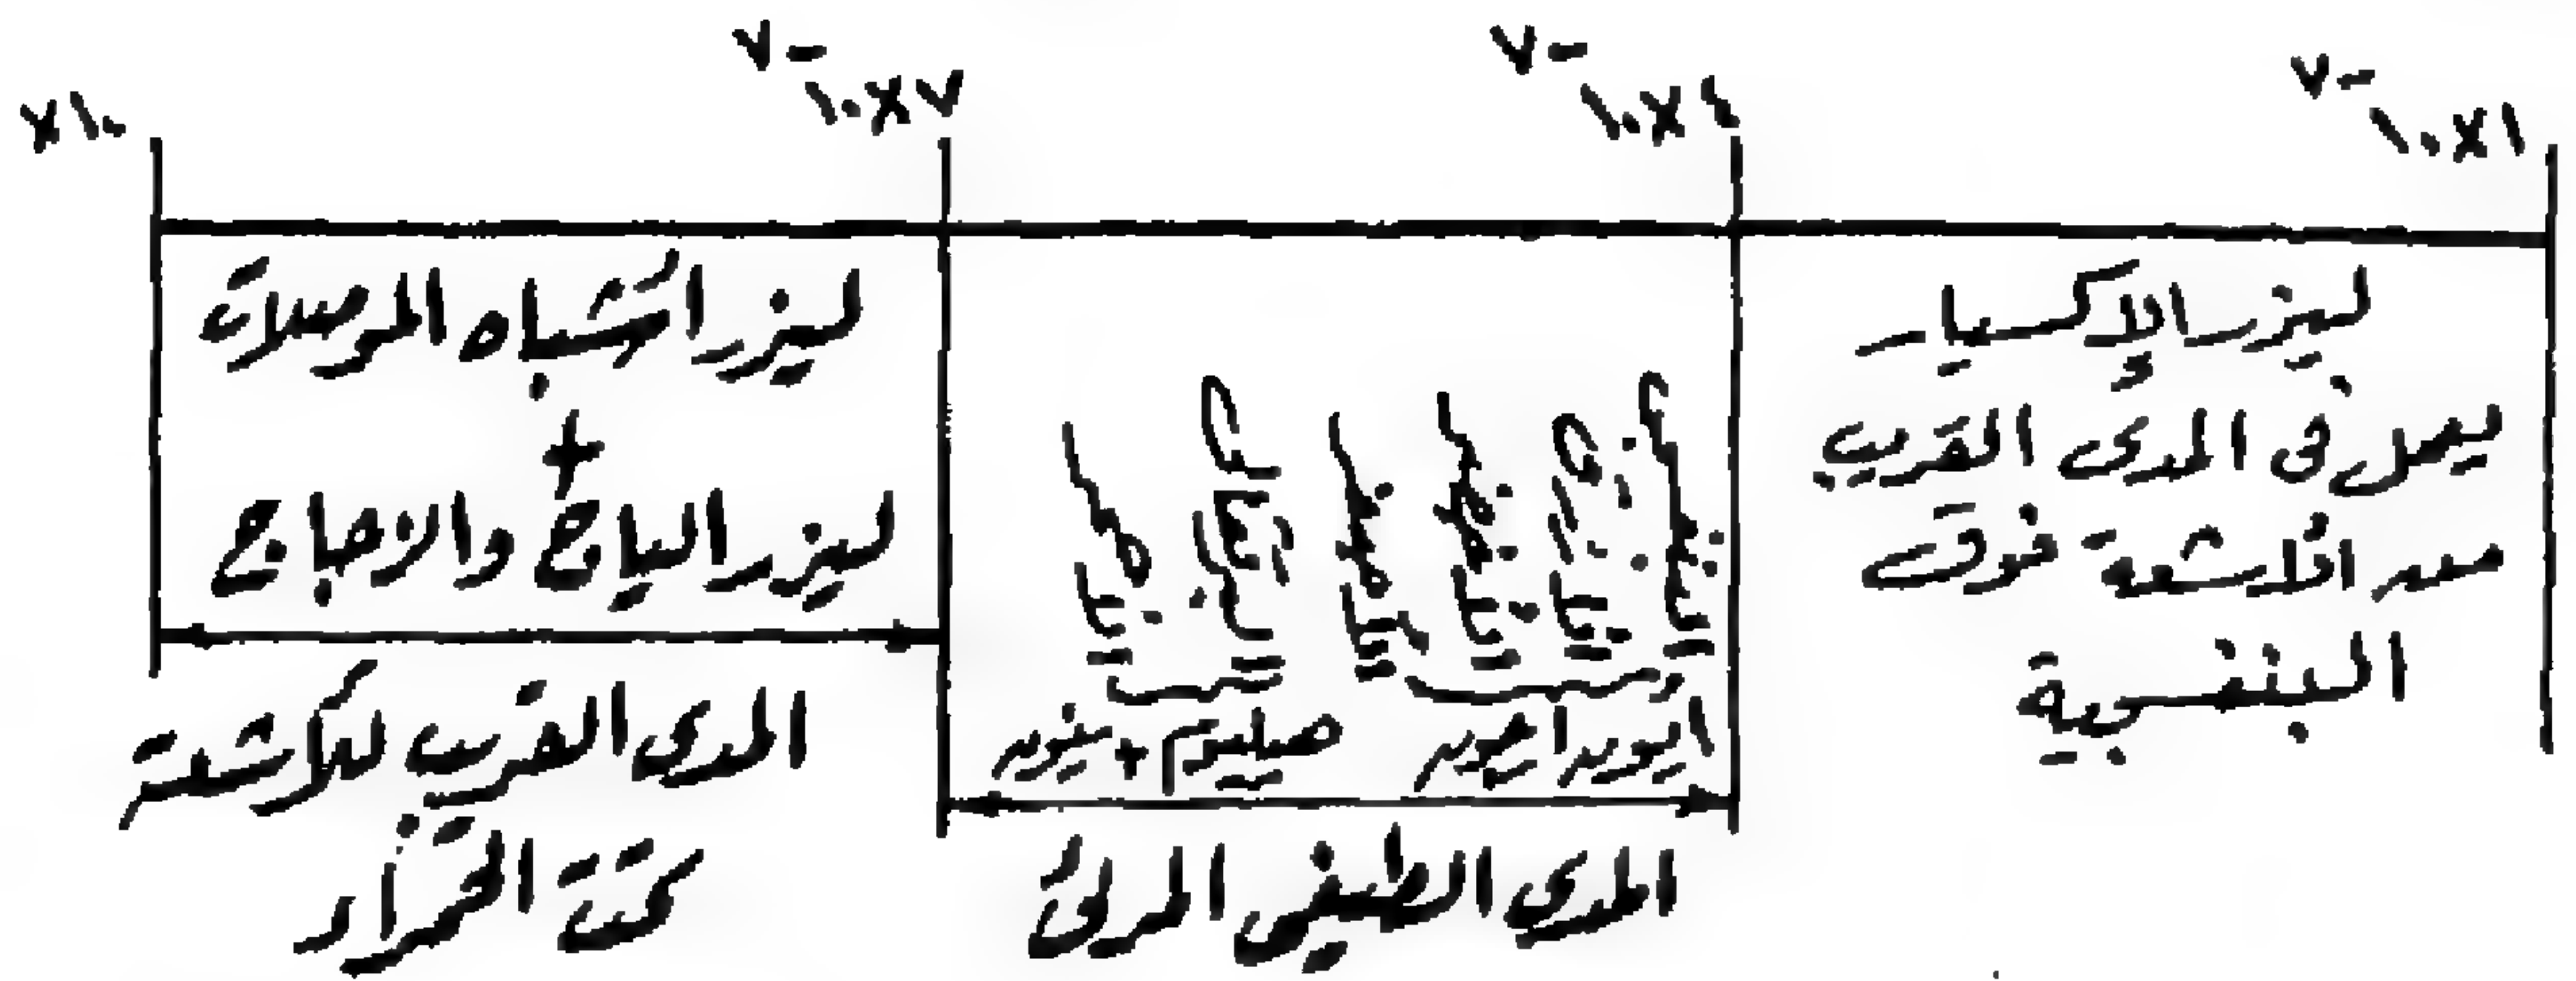 ١×١٠-٧
٤×١٠-٧
٧×١٠-٧
×١٠
ليزر الإكسيمر
يعمل فى المدى القريب
من الأشعة فوق
البنفسجية
أيون أرجون
هيليوم + نيون
المدى الطيفى المرئى
ليزر أشباه الموصلات
+
ليزر الياج والزجاج
المدى القريب للأشعة
تحت الحمراء